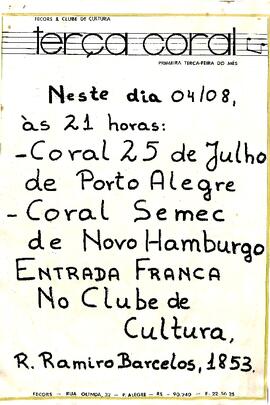 FECORS & CLUBE DE CULTURA
terça coral
PRIMEIRA TERÇA-FEIRA DO MÊS
Neste dia 04/08,
às 21 horas:
-Coral 25 de Julho
de Porto Alegre
-Coral Semec
de Novo Hamburgo
ENTRADA FRANCA
No Clube de
Cultura,
R. Ramiro Barcelos, 1853.
FECORS - RUA OLINDA, 32 - P. ALEGRE - RS - 90.240 - F: 22.56 25